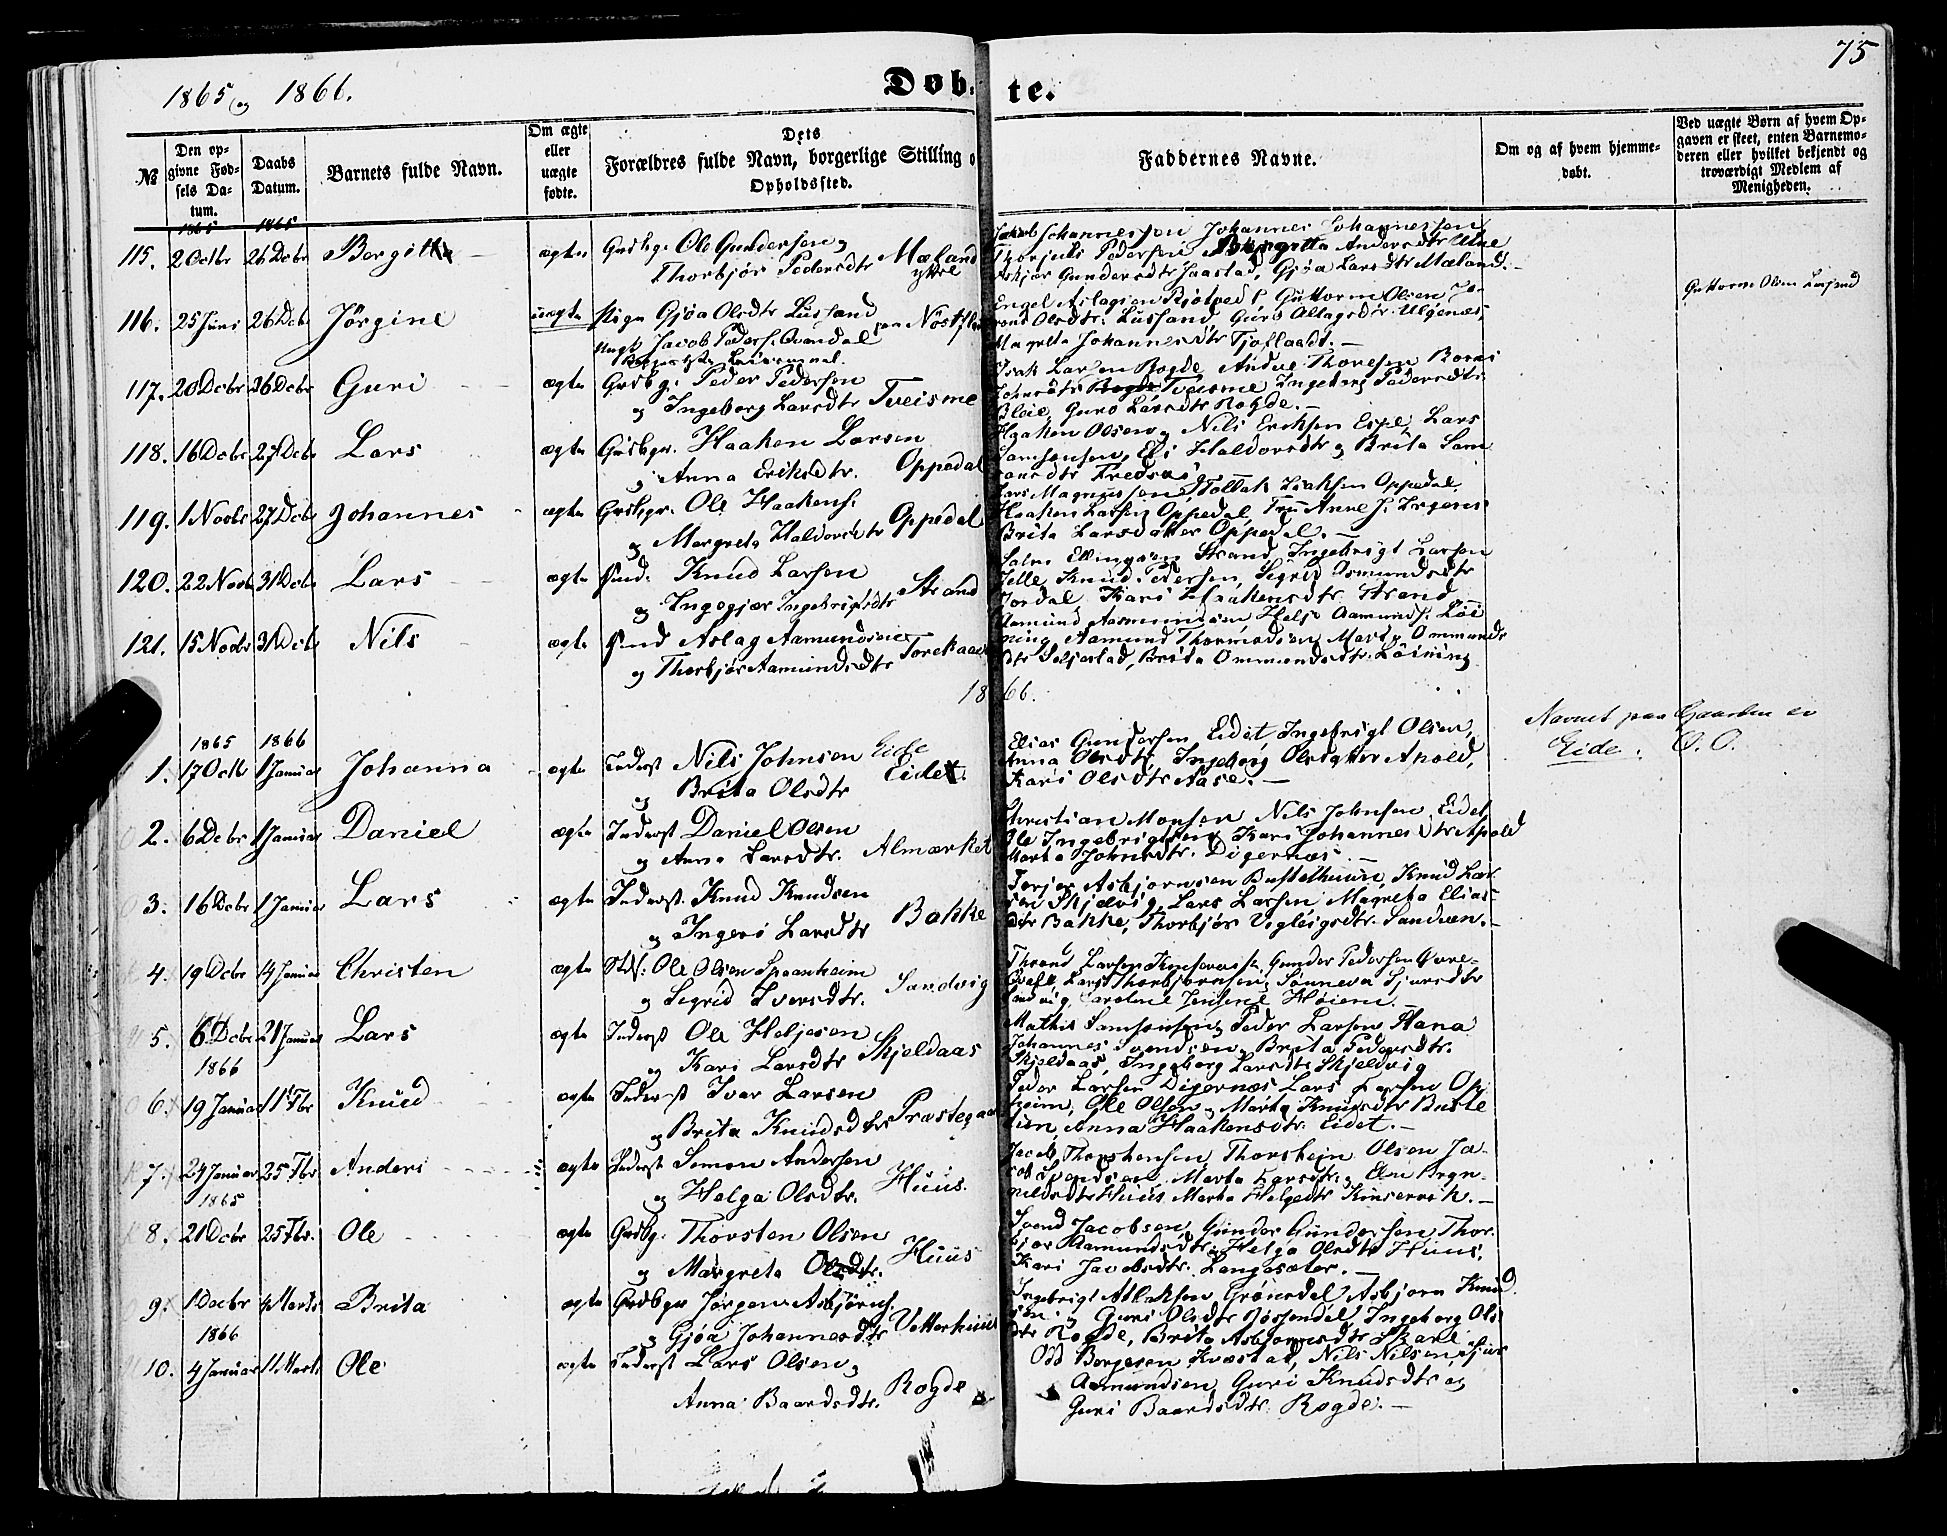 75
1865 og 1866.
Døb- te.
№
Den op-
givne Fød-
sels Da-
tum.
Daabs
Datum.
Barnets fulde Navn.
Om ægte
eller
uægte
fødte.
Dets
Forældres fulde Navn, borgerlige Stilling o
Opholdssted.
Faddernes Navne.
Om og af hvem hjemme-
døbt.
Ved uægte Børn af hvem Op-
gaven er skeet, enten Barnemo-
deren eller hvilket bekjendt og
troværdigt Medlem af
Menigheden.
1865 1865
115. 2 Octbr 26 Dcbr Bergitta ægte Grdbgr Ole Gundersen og
Thorbjør Pedersdtr Mæland ytre
Jakob Johannessen Johannes Johannessen
Thorjuls Pedersen Bergitta Andersdtr Utne
Askjær Gundersdtr Jaastad, Gjøa Larsdtr Mæland.
116. 25 Juni 26 Dcbr Jørgine uægte Pige Gjøa Olsdtr Lussand
Ungk Jacob Peders. Qvandal
Engel Aslagsen Guttorm Olsen
Olsdtr. Lussand, Guro Aslagsdtr. Ulgenæs,
Magretta Johannesdtr Tjoflaadt.
Guttorm Olsen Lussand
117. 20 Dcbr 26 Dcbr Guri ægte Grdbgr. Peder Pedersen
og Ingeborg Larsdtr Tveisme
Isak Larsen Rogde Andve Thoresen
Johnsdtr Tveisme Ingeborg Pedersdtr
Bleie, Guro Larsdtr Rogde.
118. 16 Dcbr 27 Dcbr Lars ægte Grdbgr. Haaken Larsen
og Anna Eriksdtr. Oppedal
Haaken Olsen og Nils Eriksen Espe, Lars
Samsonsen, Eli Haldorsdtr og Brita Sam
sonsdtr
119. 1 Novbr 27 Dcbr Johannes ægte Grdbgr. Ole Haakens.
og Margreta Haldorsdtr Oppedal
Lars Magnussen, Tollak Isaksen Oppedal,
Haaken Larsen Oppedal, Fru Anne J. Irgens
Brita Larsdatter Oppedal.
120. 22 Novb 31 Dcbr Lars ægte Hmd. Knud Larsen
og Ingegjær Ingebrigtsdtr Strand
Salm. Ellingsen Strand, Ingebrigt Larsen
Jelle, Knud Pedersen, Sigrid Osmundsdtr
Jordal, Kari Haakensdtr Strand
121. 15 Novbr 31 Dcbr Nils ægte Hmd Aslag Aamundsen
og Thorbjør Aamundsdtr
Aamund Aamundsen Helje Aamunds. Løi
ning, Aamund Thormodsen, Marta Ommunds
dtr Seljestad, Brita Ommundsdtr. Løining
1866.
1865 1866
1. 17 Octb 1 Januar Johanna ægte Inderst Nils Johnsen Eide
og Brita Olsdtr Eidet.
Elias Gundersen Eidet, Ingebrigt Olsen,
Anna Olsdtr, Ingeborg Olsdatter Apold,
Kari Olsdtr Aase.
Navnet paa Gaarden er
Eide. O. O.
2. 6 Dcbr 1 Januar Daniel ægte Inderst Daniel Olsen
og Anna Larsdtr. Almærket
Christian Monsen Nils Johnsen Eidet
Ole Ingebrigtsen, Kari Johannesdtr Apold
Marta Johnsdtr. Digernæs.
3. 16 Dcbr 1 Januar Lars ægte Inderst Knud Knudsen
og Ingeri Larsdtr Bakke
Torjer Asbjørnsen Bustethuun, Knud Lar
sen Skjelvig, Lars Larsen Magreta Elias
dtr Bakke, Thorbjør Vigleigsdtr. Sandven.
4. 19 Dcbr 14 Januar Christen ægte Ole Olsen Spaanheim
og Sigrid Iversdtr. Sandvig
Thrond Larsen Gunder Pedersen
Lars Thorbjørnsen, Sønneva Sjursdtr
Sandvig, Caroline Jensine Høiem.
5. 6 Dcbr 21 Januar Lars ægte Inderst Ole Heljesen
og Kari Larsdtr Skjeldaas
Mathis Samsonsen, Peder Larsen Hana
Johannes Svendsen, Brita Pedersdtr.
Skjeldaas, Ingeborg Larsdtr Skjeldvig
1866
6. 19 Januar 11 Fbr Knud ægte Inderst Ivar Larsen
og Brita Knudsdtr Præstegaa
Peder Larsen Digernæs Lars Larsen Op
heim, Ole Olsen, Marta Knudsdtr Buste
tuen, Anna Haakensdtr. Eidet.
7. 24 Januar 25 Fbr Anders ægte Inderst Simon Andersen
og Helga Olsdtr. Huus.
Jacob Thorstensen Thorstein Olsen Ja-
cob Svendsen, Marta Larsdtr, og Eli Bryn-
hildsdtr Huus Marta Helgedtr Kinservik.
1865
8. 21 Dcbr 25 Fbr. Ole ægte Grdbg. Thorsten Olsen
og Margreta Olsdtr. Huus
Svend Jacobsen, Gunder Gundersen, Thor-
bjør Aamundsdtr, Helga Olsdtr Huus,
Kari Jacobsdtr. Langesæter.
9. 1 Decbr 4 Marts Brita ægte Grdbgr Jørgen Asbjørns.
og Gjøa Johannesdtr Vetterhuus
Ingebrigt Asbjørn Knud
sen, Guri Olsdtr Ingeborg Ols
dtr Rogde, Brita Asbjørnsdtr Skare
1866
10. 4 Januar 11 Marts Ole ægte Inderst Lars Olsen og
Anna Baardsdtr. Rogde
Odd Børgesen Kvæstad, Nils Nilsen Sjur
Aamundsen Guri Knudsdtr og
Guri Baardsdtr. Rogde.